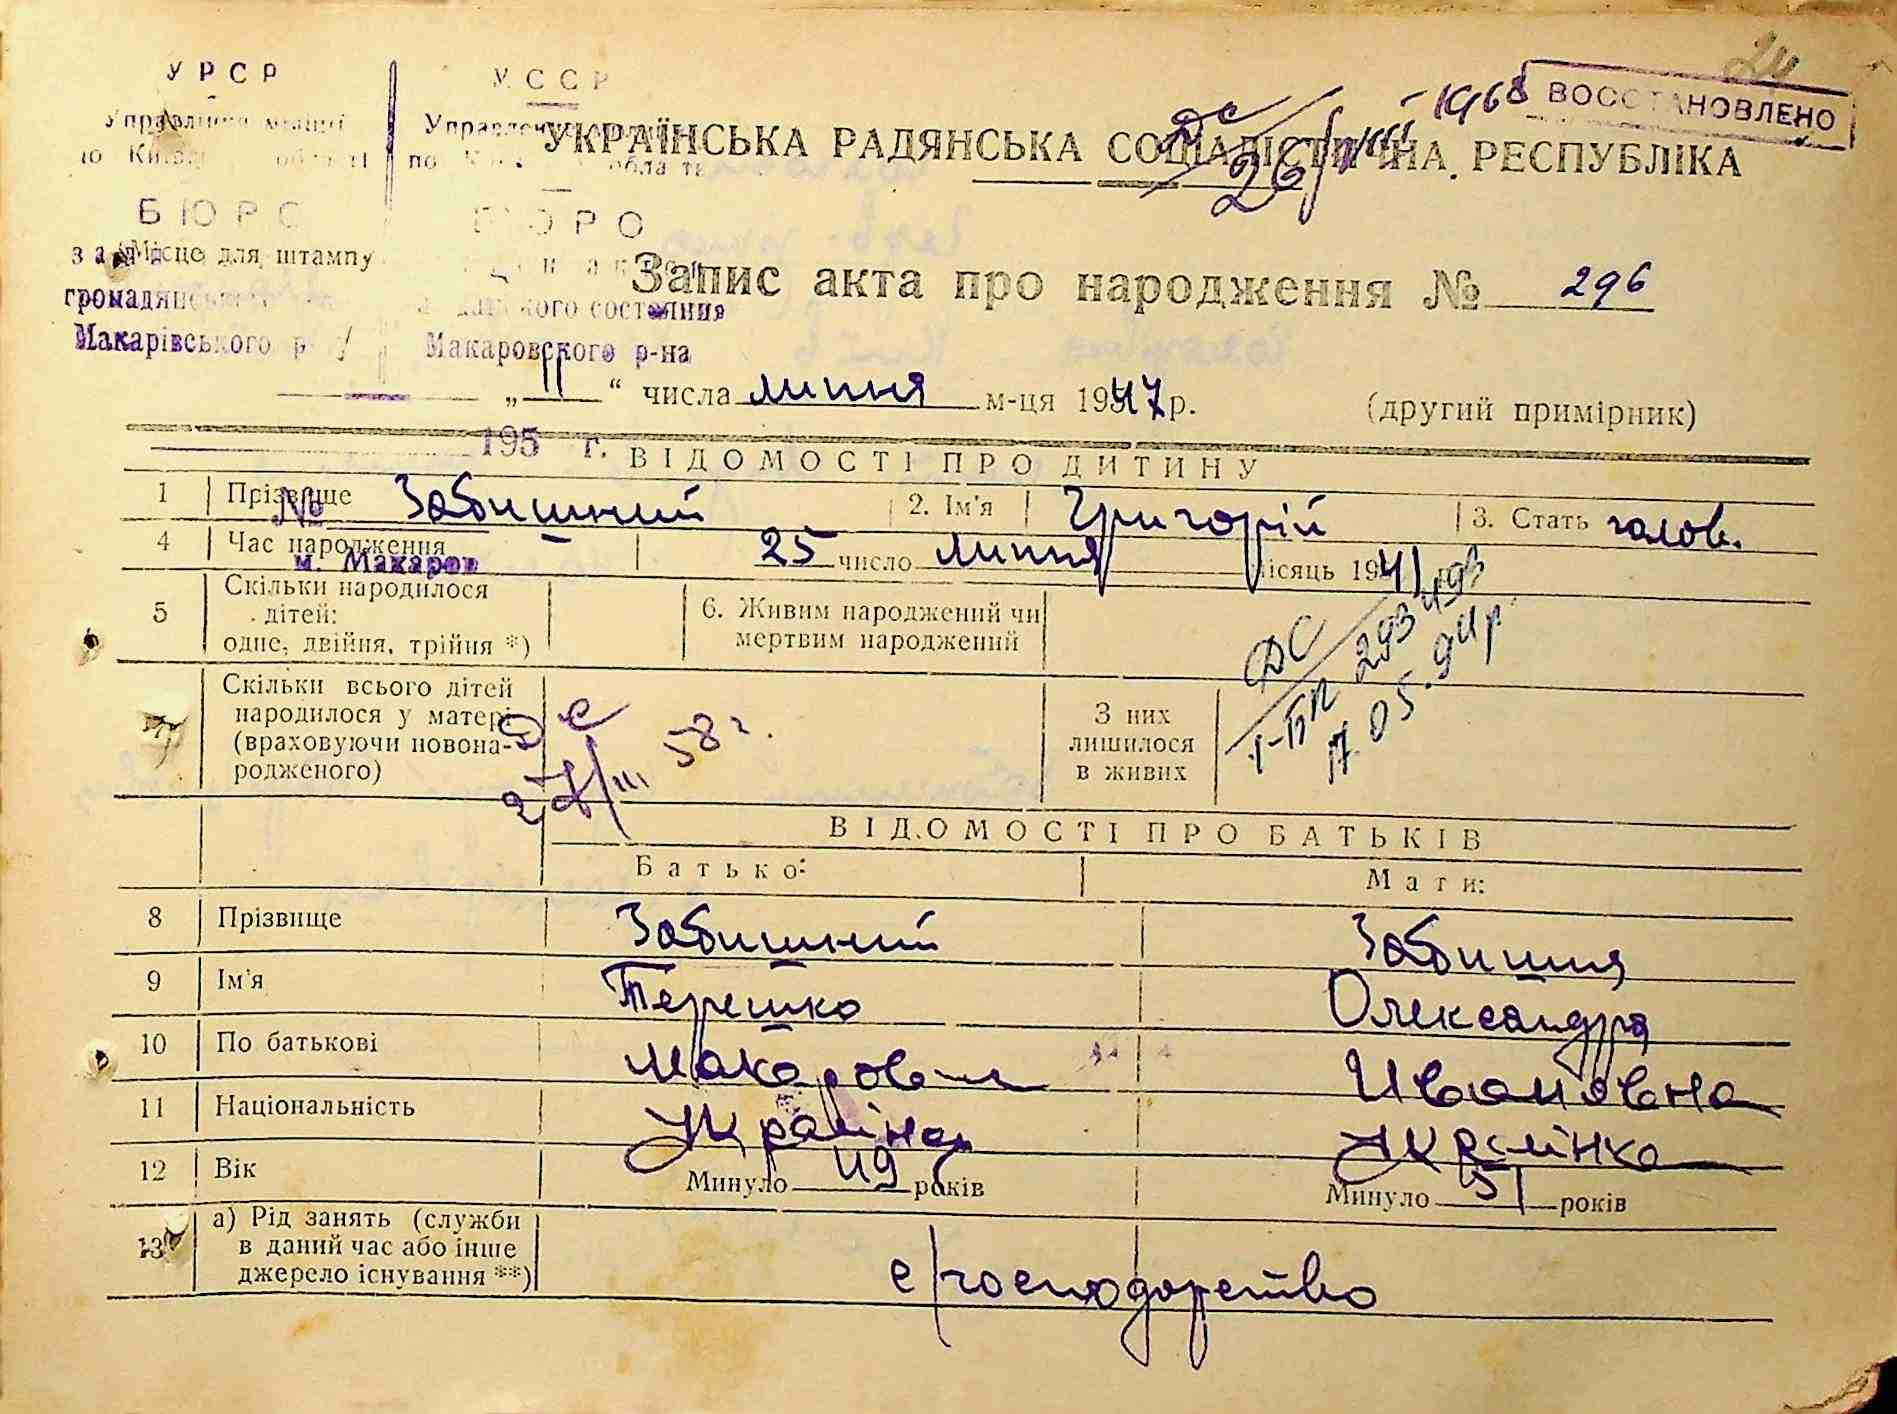 24
УРСР УССР
Управління міліції Управление
по Київ області по К области
ДС
26/VIII 1968
ВОССТАНОВЛЕНО
УКРАЇНСЬКА РАДЯНСЬКА СОЦІАЛІСТИЧНА РЕСПУБЛІКА
БЮРО БЮРО
(Місце для штампу
громадянських гражданского состояния
Макарівського р-ну Макаровского р-на
Запис акта про народження № 296
„11“ числа липня м-ця 1947 р. (другий примірник)
195 г.
ВІДОМОСТІ ПРО ДИТИНУ
1 Прізвище Забишний 2. Ім'я Григорій 3. Стать чолов.
№
4 Час народження 25 число липня місяць 1941
м. Макаров
5 Скільки народилося дітей:
одне, двійня, трійня *)
6. Живим народжений чи
мертвим народжений
ДС
І-БК 293493
17.05.94р.
7 Скільки всього дітей
народилося у матері
(враховуючи новона-
родженого)
ДС
27/III 58 г.
З них
лишилося
в живих
ВІДОМОСТІ ПРО БАТЬКІВ
Батько: Мати:
8 Прізвище Забишний Забишня
9 Ім'я Терешко Олександра
10 По батькові Макарович Ивановна
11 Національність Українець Українка
12 Вік Минуло 49 років Минуло 51 років
13 а) Рід занять (служби
в даний час або інше
джерело існування **)
с/господарство